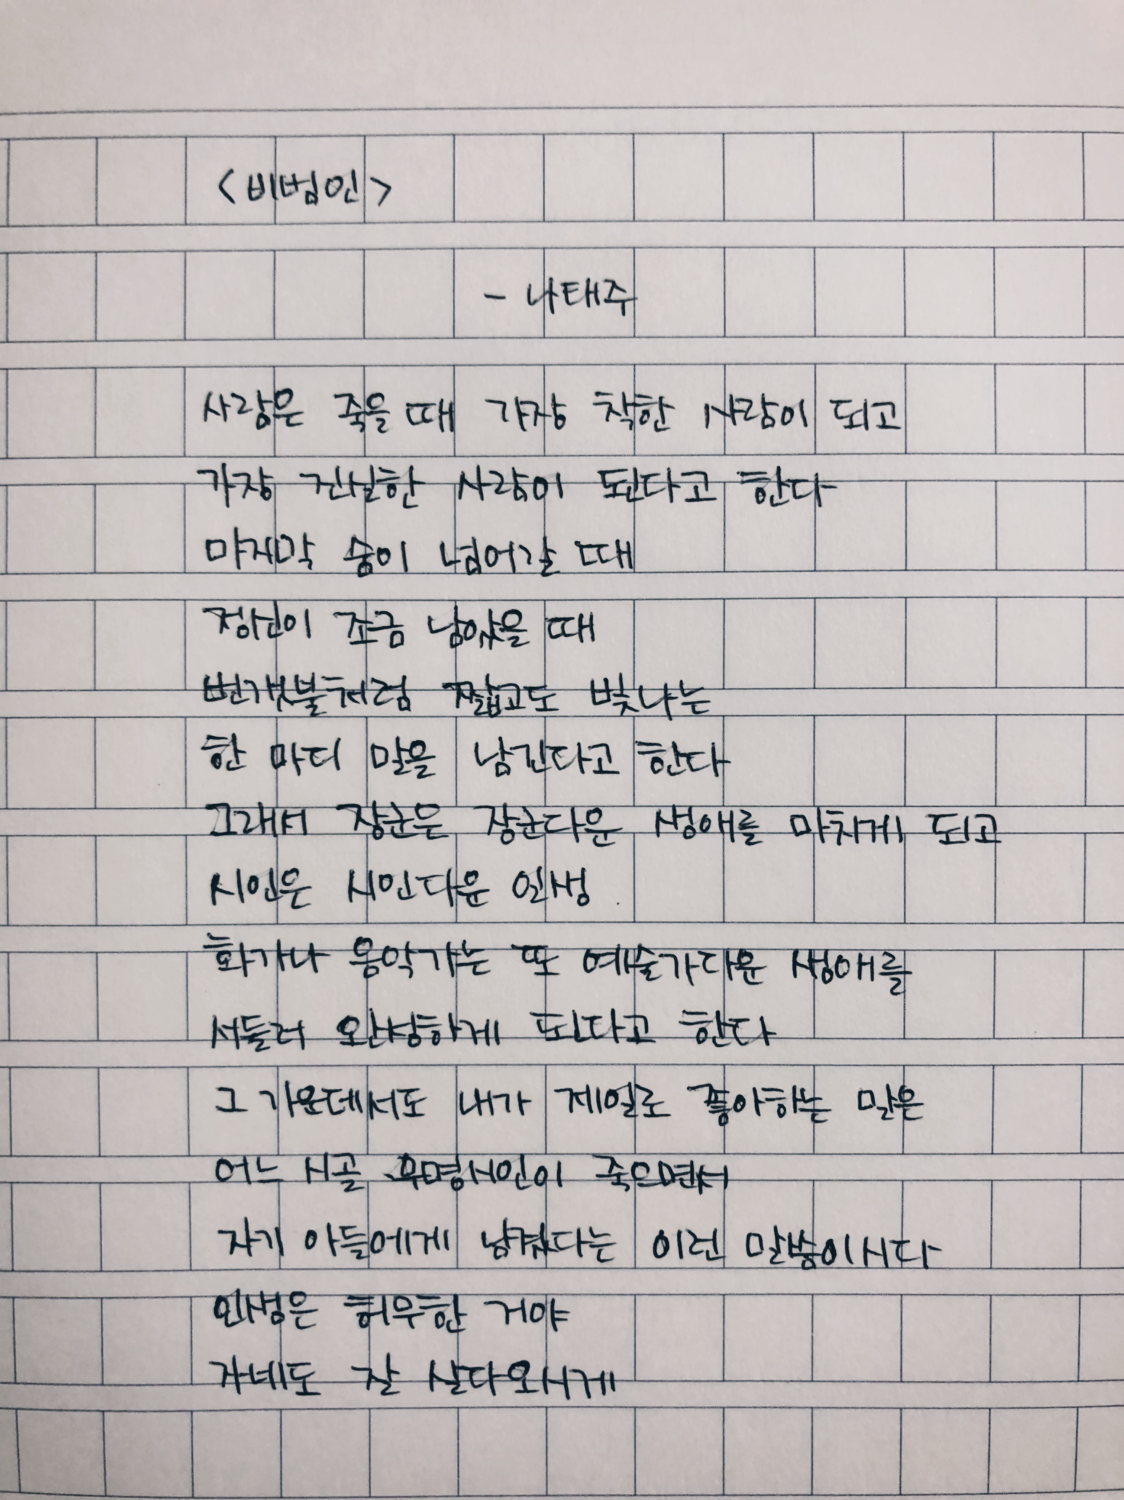 <비범인>
- 나태주
사람은 죽을 때 가장 착한 사람이 되고
가장 진실한 사람이 된다고 한다
마지막 숨이 넘어갈 때
정신이 조금 남았을 때
번갯불처럼 짧고도 빛나는
한 마디 말을 남긴다고 한다
그래서 장군은 장군다운 생애를 마치게 되고
시인은 시인다운 인생
화가나 음악가는 또 예술가다운 생애를
서둘러 완성하게 된다고 한다
그 가운데서도 내가 제일로 좋아하는 말은
어느 시골 무명시인이 죽으면서
자기 아들에게 남겼다는 이런 말씀이시다
인생은 허무한 거야
자네도 잘 살다오시게